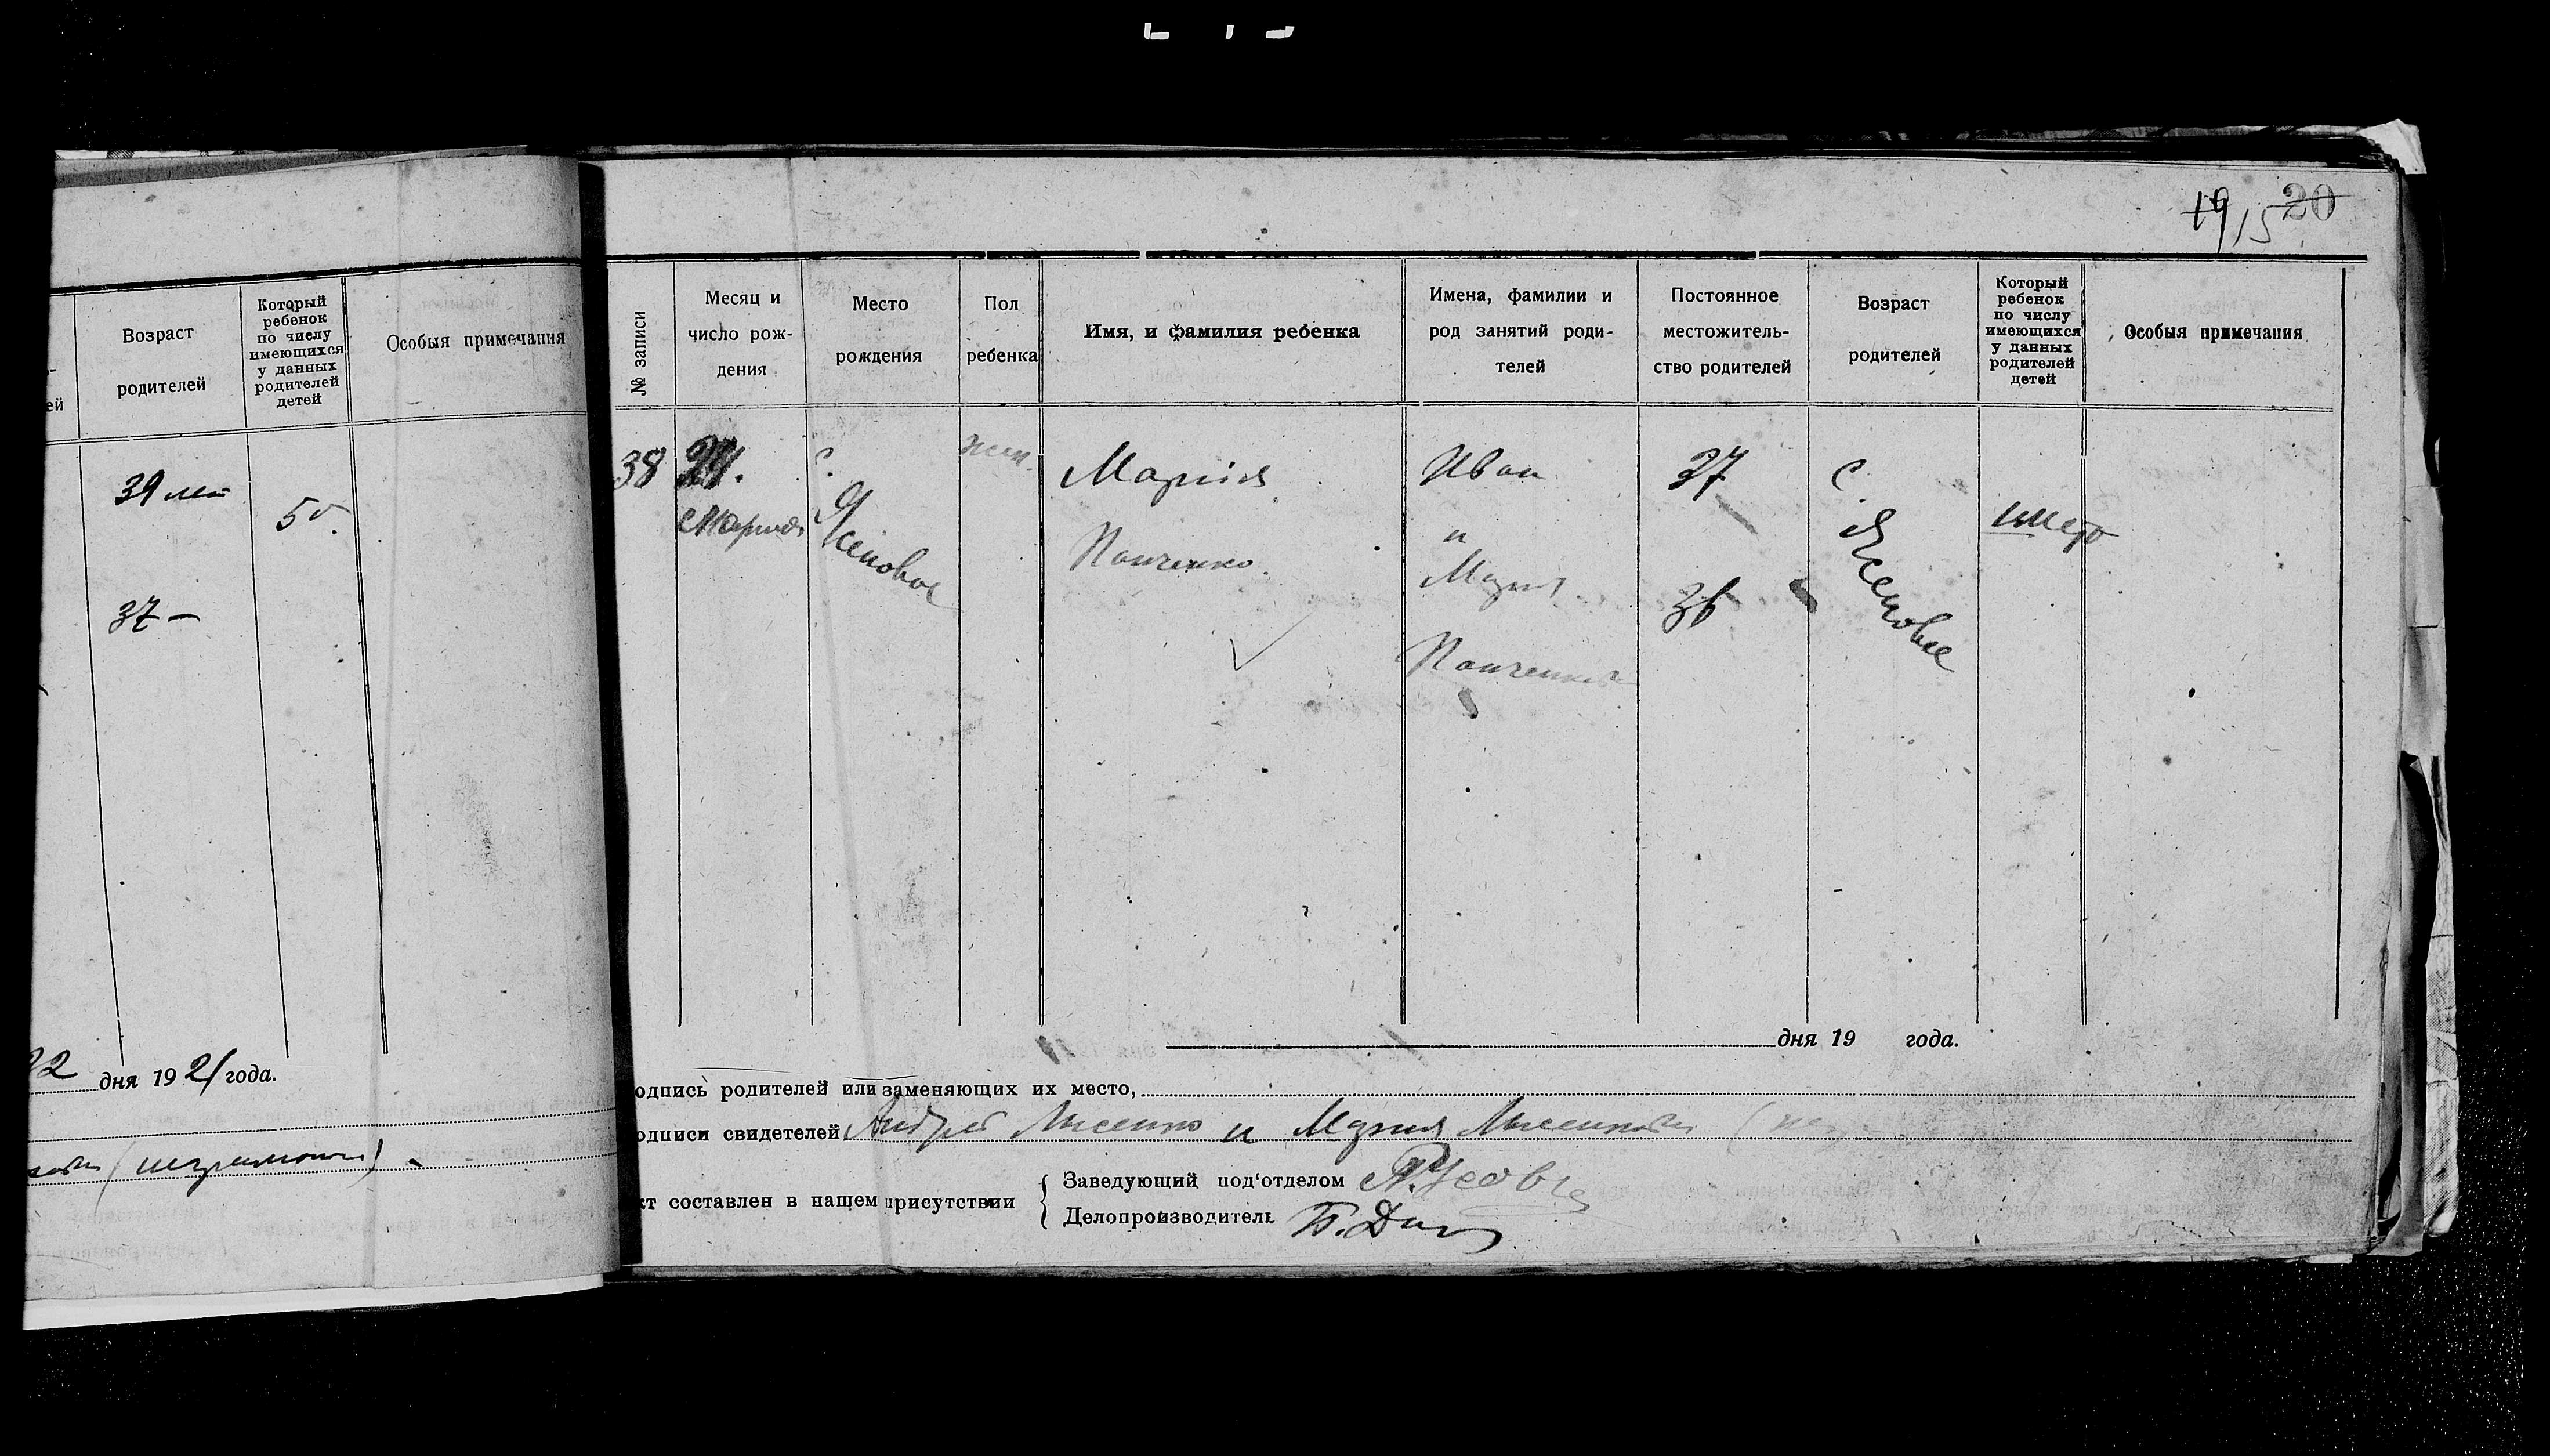 19 15 20
Возраст
родителей
Который
ребенок
по числу
имеющихся
у данных
родителей
детей
Особыя примечания
ей
39 лет
5й.
37 —
22 дня 1921 года.
(неграмотн)
№ записи
Месяц и
число рож-
дения
Место
рождения
Пол
ребенка
Имя, и фамилия ребенка
Имена, фамилии и
род занятий роди-
телей
Постоянное
местожитель-
ство родителей
Возраст
родителей
Который
ребенок
по числу
имеющихся
у данных
родителей
детей
Особыя примечания
38
24.
Марта
с.
Ясеновое
жен.
Мария
Панченко.
Иван
и
Мария
Панченко
37
36
с.
Ясеновое
дня 19 года.
одпись родителей или заменяющих их место,
одписи свидетелей Андрей Лысенко и Мария Лысенкова
кт составлен в нашем присутствии
Заведующий под'отделом
Делопроизводитель